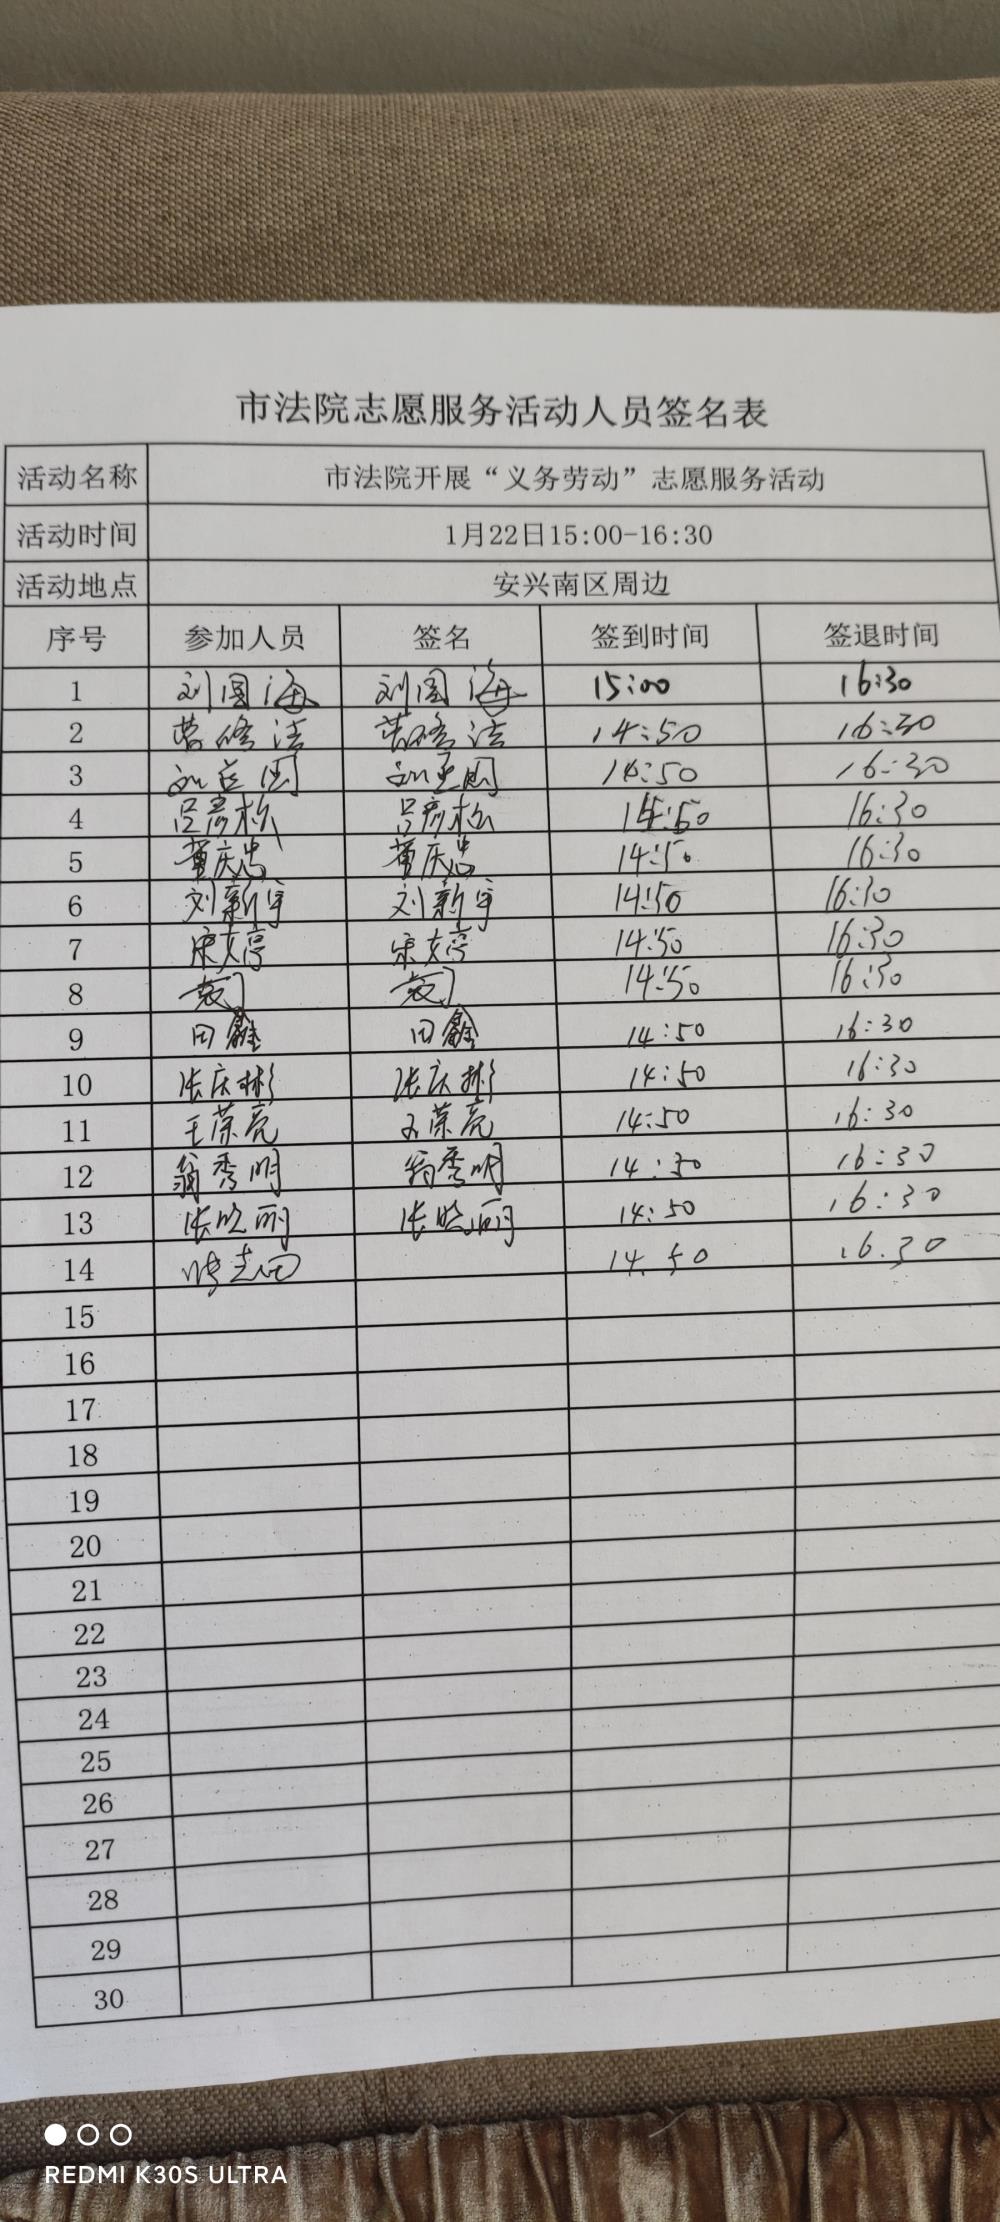 市法院志愿服务活动人员签名表
活动名称 市法院开展“义务劳动”志愿服务活动
活动时间 1月22日15:00-16:30
活动地点 安兴南区周边
序号 参加人员 签名 签到时间 签退时间
1 刘国海 刘国海 15:00 16:30
2 14:50 16:30
3 14:50 16:30
4 吕彦松 吕彦松 14:50 16:30
5 董庆忠 董庆忠 14:50 16:30
6 刘新宇 刘新宇 14:50 16:30
7 宋文亭 宋文亭 14:50 16:30
8 14:50 16:30
9 田鑫 田鑫 14:50 16:30
10 张庆彬 张庆彬 14:50 16:30
11 王荣亮 王荣亮 14:50 16:30
12 翁秀明 翁秀明 14:50 16:30
13 张晓丽 张晓丽 14:50 16:30
14 14.50 16.30
15
16
17
18
19
20
21
22
23
24
25
26
27
28
29
30
REDMI K30S ULTRA